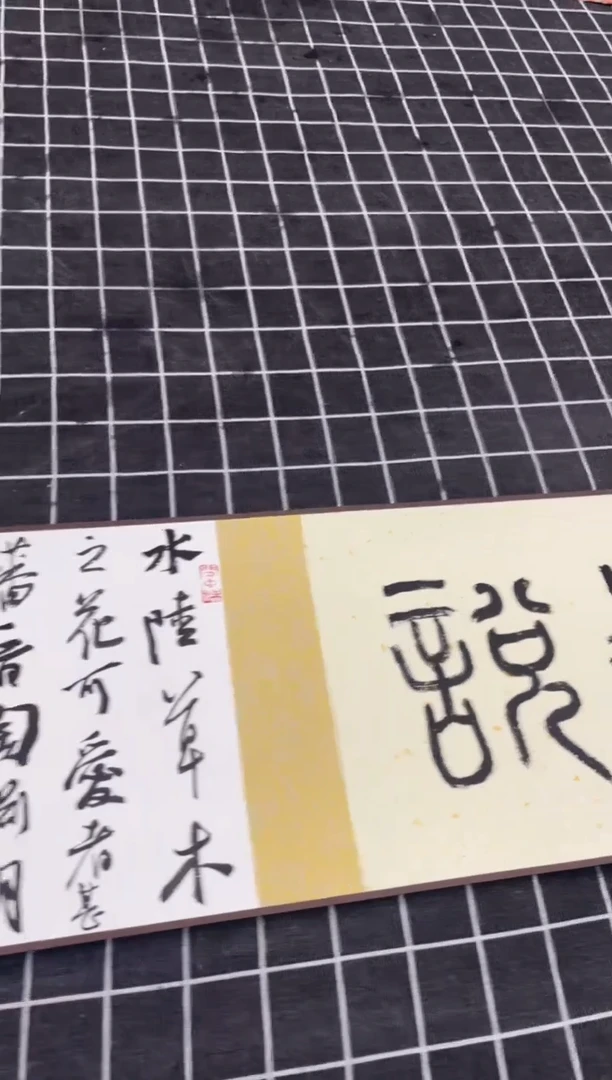 說
水陸草木
之花可愛者甚
蕃晋陶